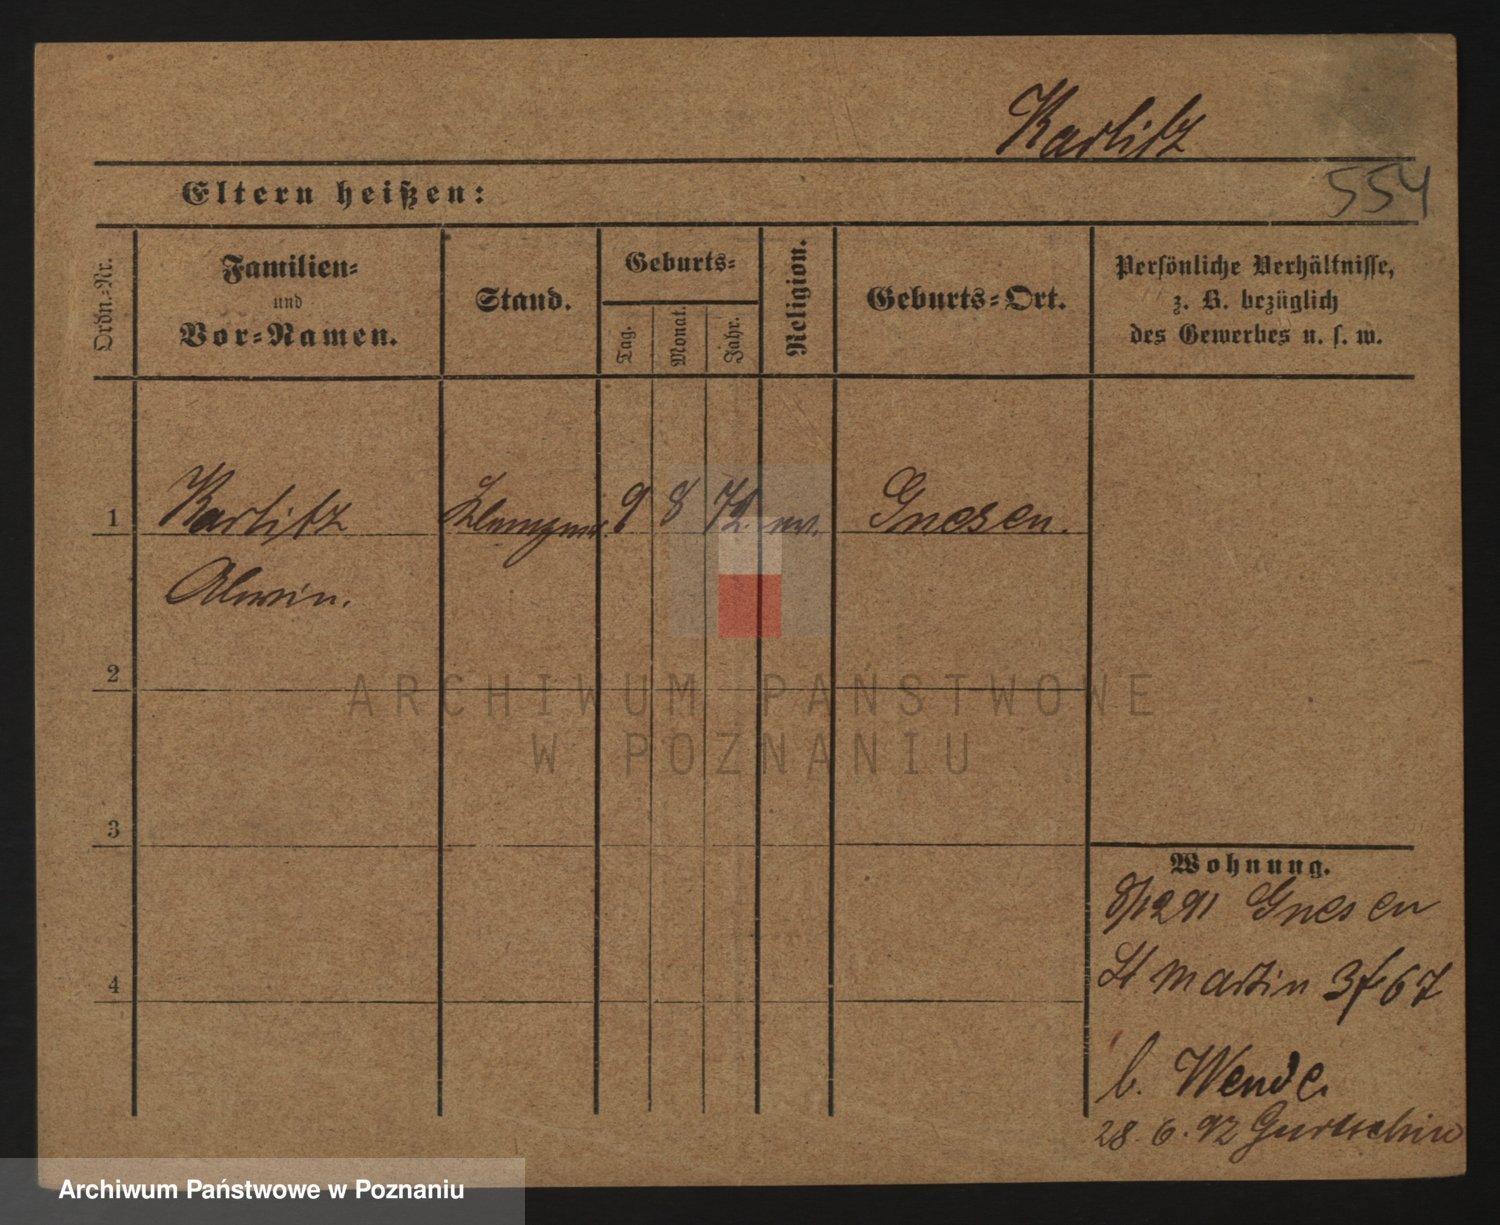 Karlitz
554
Eltern heißen:
Ordn.-Nr.
Familien-
und
Vor-Namen.
Stand.
Geburts-
Tag.
Monat.
Jahr.
Religion.
Geburts-Ort.
Persönliche Verhältnisse,
z. B. bezüglich
des Gewerbes u. s. w.
1 Karlitz 9 8 72 ev. Gnesen.
Alwin.
2
3
4
Wohnung.
8/12 91 Gnesen
St Martin 67
b. Wende
28. 6. 92
ARCHIWUM PAŃSTWOWE
W POZNANIU
Archiwum Państwowe w Poznaniu